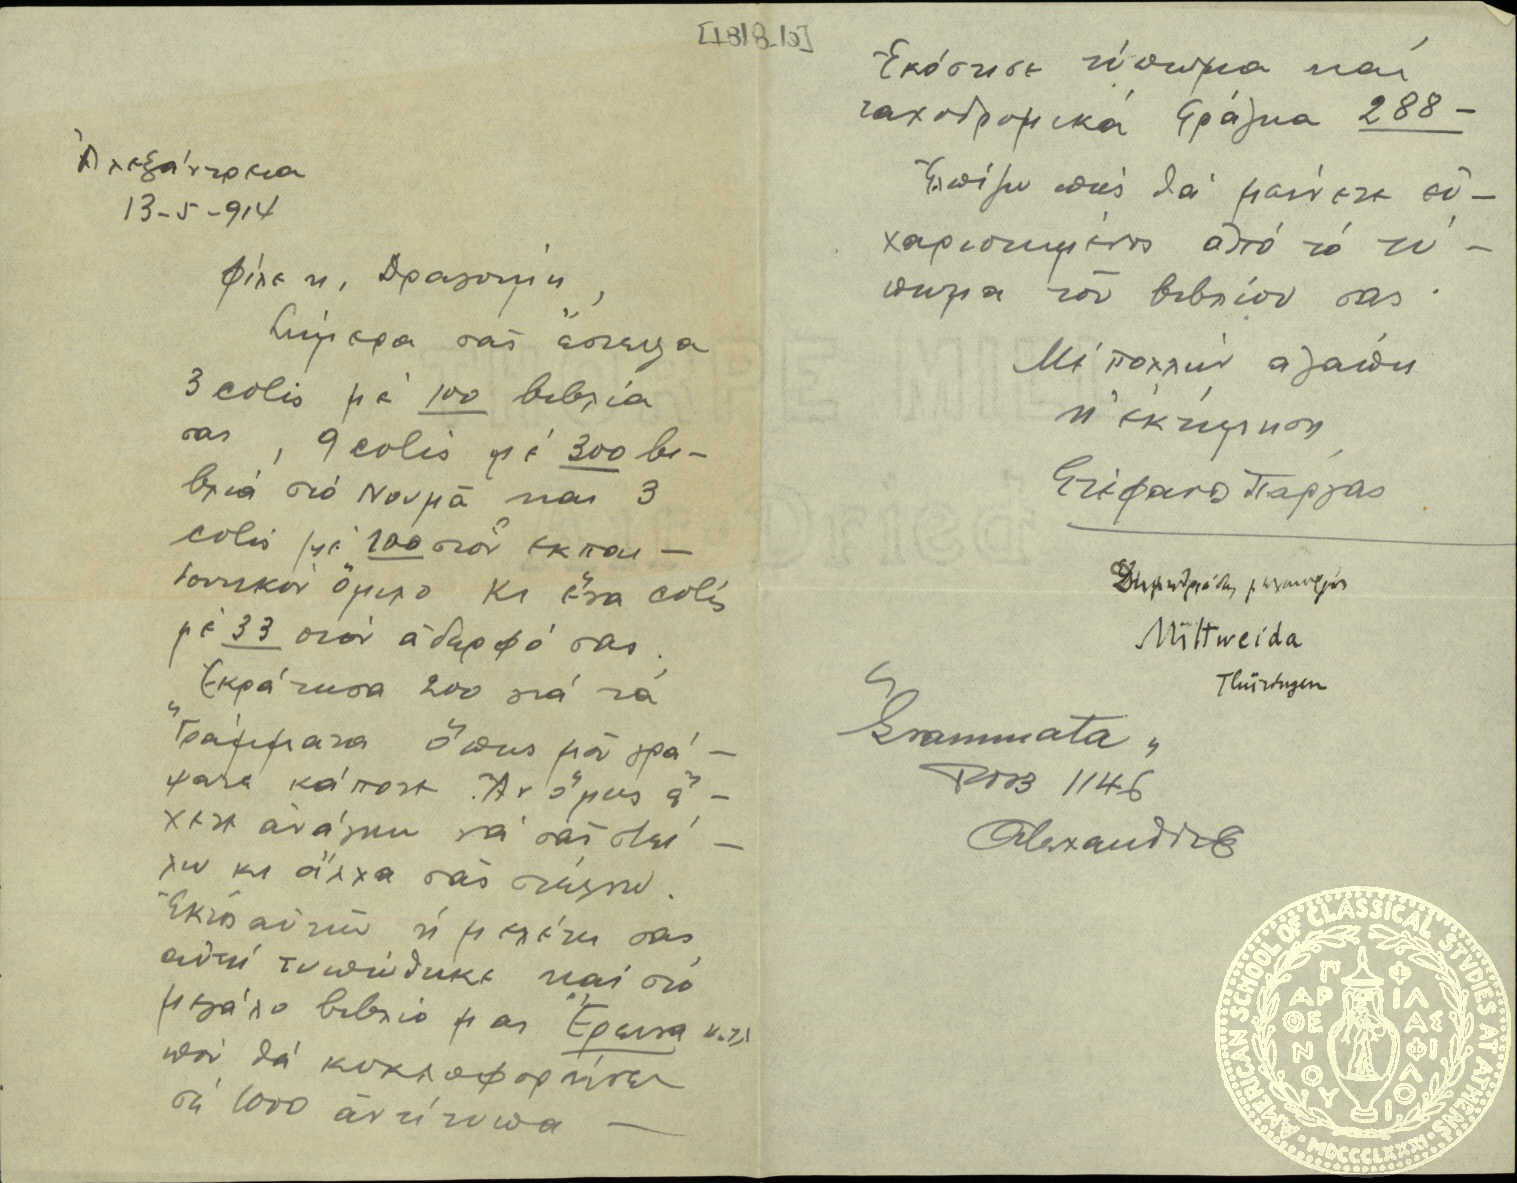 Ἀλεξάντρεια
13-5-914
Φίλε κ. Δραγούμη,
Σήμερα σᾶς ἔστειλα
3 colis μέ 100 βιβλία
σας, 9 colis μέ 300 βι-
βλιά στό Νουμᾶ και 3
colis μέ 100 στόν ἐκπαι-
δευτικόν ὅμιλο κι ἕνα colis
μέ 33 στόν ἀδερφό σας.
Ἐκράτησα 200 γιά τά
"Γράμματα ὅπως μοῦ γρά-
ψατε κάποτε. Ἄν ὅμως ἔ-
χετε ἀνάγκη νά σᾶς στεί-
λω κι ἄλλα σᾶς στέλνω.
Ἐκτός αὐτῶν ἡ μελέτη σας
αὐτή τυπώθηκε καί στό
μεγάλο βιβλίο μας Ἔρευνα κ.τ.λ
πού θά κυκλοφορήσει
σέ 1000 ἀντίτυπα —
Ἐκόστισε τύπωμα καί
ταχυδρομικά φράγκα 288 -
Ἐλπίζω πώς θά μείνετε εὐ-
χαριστημένος ἀπό τό τύ-
πωμα τοῦ βιβλίου σας.
Μέ πολλήν ἀγάπη
κ' ἐκτίμηση
Στέφανο Πάργας
Mittweida
Thüringen
"Grammata"
POB 1146
Alexandrie
AMERICAN SCHOOL OF CLASSICAL STUDIES AT ATHENS
MDCCCLXXXI
ΠΑΡΘΕΝΟΥ ΦΙΛΑΣ ΦΙΛΟΙ